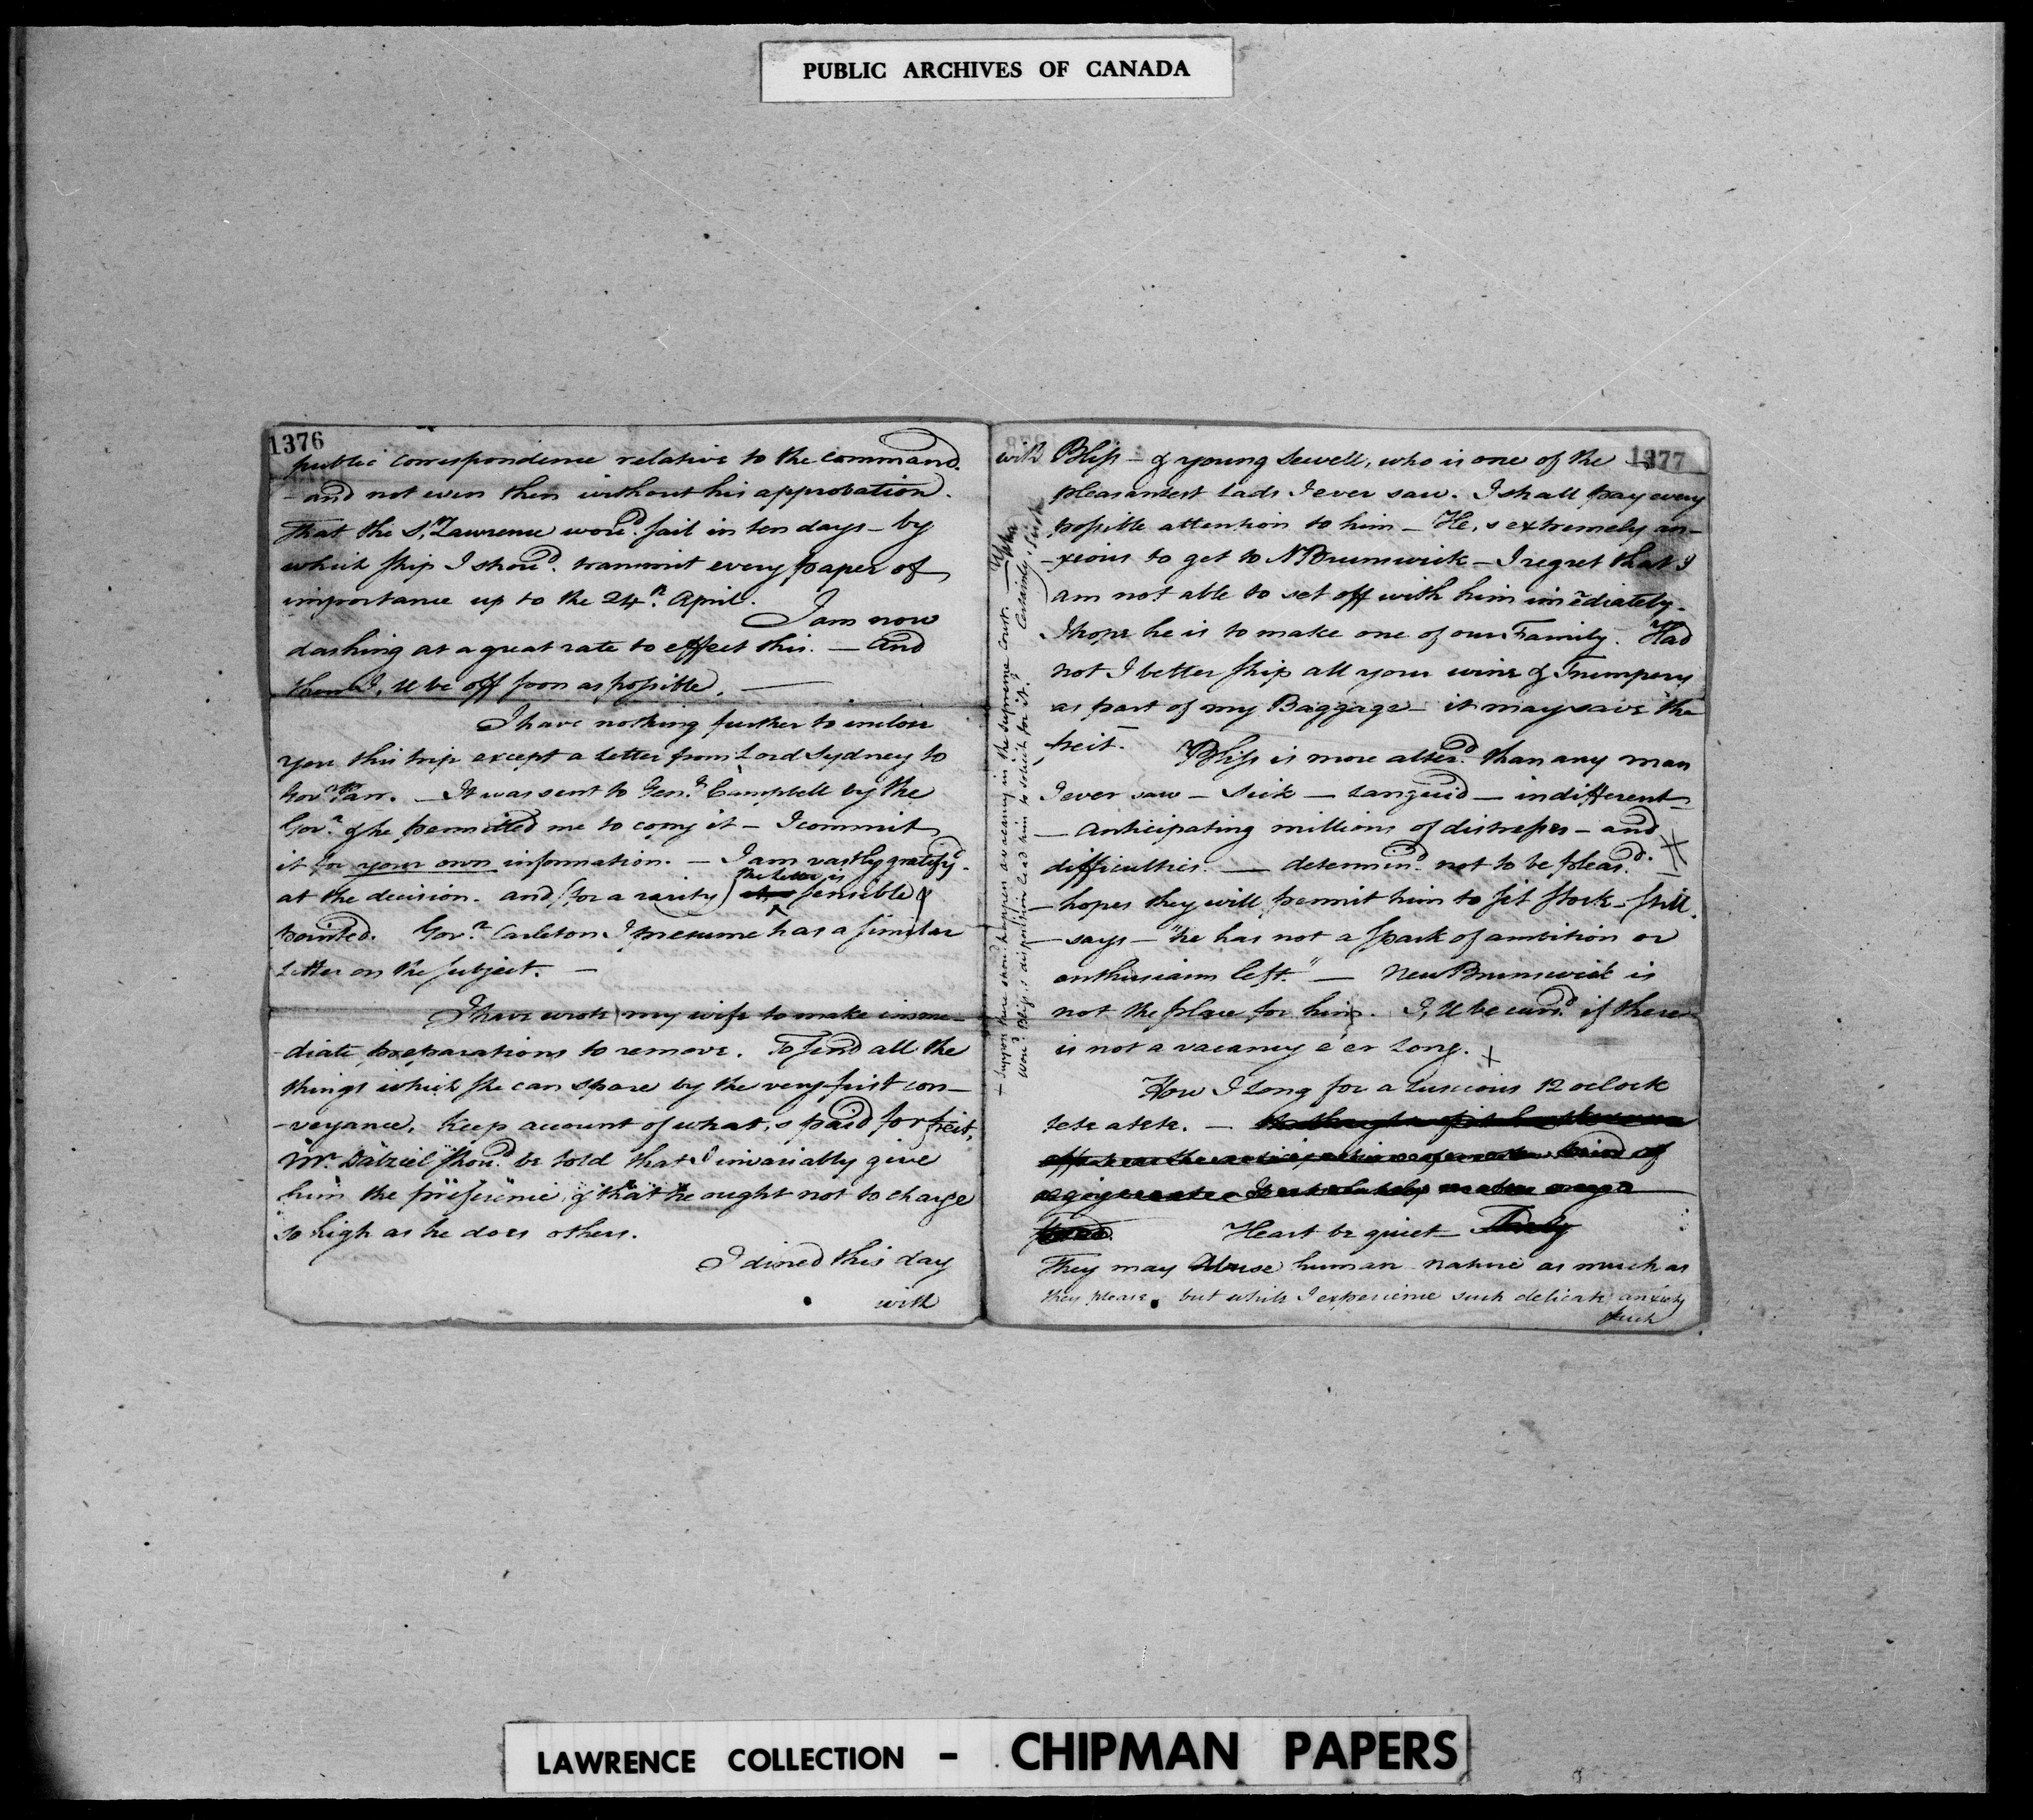 PUBLIC ARCHIVES OF CANADA
1376
public correspondence relative to the command.
- and not even then without his approbation.
That the St. Lawrence woud. sail in ten days - by
which ship I shoud. transmit every paper of
importance up to the 24th. April.
I am now
dashing at a great rate to effect this. — and
then I,ll be off soon as possible. —
I have nothing further to inclose
you this trip except a letter from Lord Sydney to
Govr. Parr. — It was sent to Genl. Campbell by the
Govr. & he permitted me to copy it - I commit
it for your own information. — I am vastly gratifyd.
at the decision. and (for a rarity) the letter is sensible &
pointed. Govr. Carleton I presume has a similar
Letter on the subject. —
I have wrote my wife to make imme-
-diate preparations to remove. To send all the
things which she can spare by the very first con-
-veyance. Keep account of what,s paid for freit,
Mr. Dalziel shoud. be told that I invariably give
him the preference, & that he ought not to charge
so high as he does others.
I dined this day
with
1377
with Bliss - & young Sewell, who is one of the
pleasantest Lads I ever saw. I shall pay every
possible attention to him - He,s extremely an-
-xious to get to NBrunswick - I regret that I
am not able to set off with him imediately.
I hope he is to make one of our Family. Had
not I better ship all your wine & Trumpery
as part of my Baggage - it may save the
freit. Bliss is more alterd. than any man
I ever saw - Sick - Languid - indifferent
- anticipating millions of distresses - and
difficulties. — determind. not to be pleasd.
- hopes they will permit him to sit stock-still.
- says - "he has not a spark of ambition or
enthusiasm left." — New Brunswick is
not the place for him. I,ll be cursd. if there
is not a vacancy e'er long. +
How I Long for a Luscious 12 oclock
tete a tete. —
Heart be quiet
They may Abuse human nature as much as
they please. but while I experience such delicate anxiety
such
+ suppose there shoud. happen a vacancy in the supreme Court. —
woud. Bliss,s disposition lead him to solicit for it? Certainly
LAWRENCE COLLECTION - CHIPMAN PAPERS